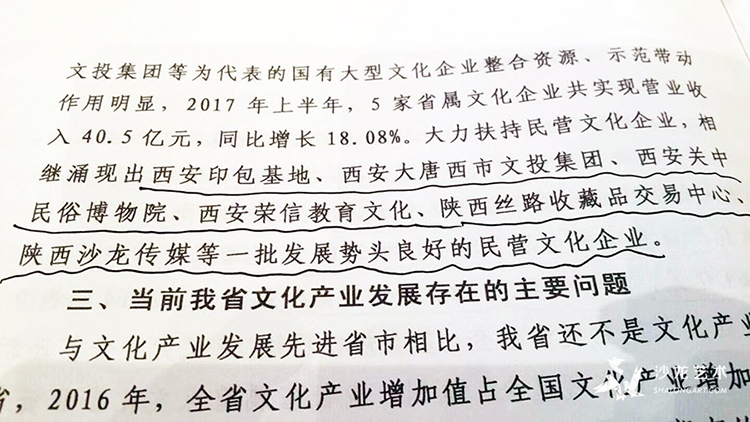 文投集团等为代表的国有大型文化企业整合资源、示范带动
作用明显，2017 年上半年，5 家省属文化企业共实现营业收
入 40.5 亿元，同比增长 18.08%。大力扶持民营文化企业，相
继涌现出西安印包基地、西安大唐西市文投集团、西安关中
民俗博物院、西安荣信教育文化、陕西丝路收藏品交易中心、
陕西沙龙传媒等一批发展势头良好的民营文化企业。
三、当前我省文化产业发展存在的主要问题
与文化产业发展先进省市相比，我省还不是文化产业
省，2016 年，全省文化产业增加值占全国文化产业增加
沙龙艺术
SHALONGART.COM